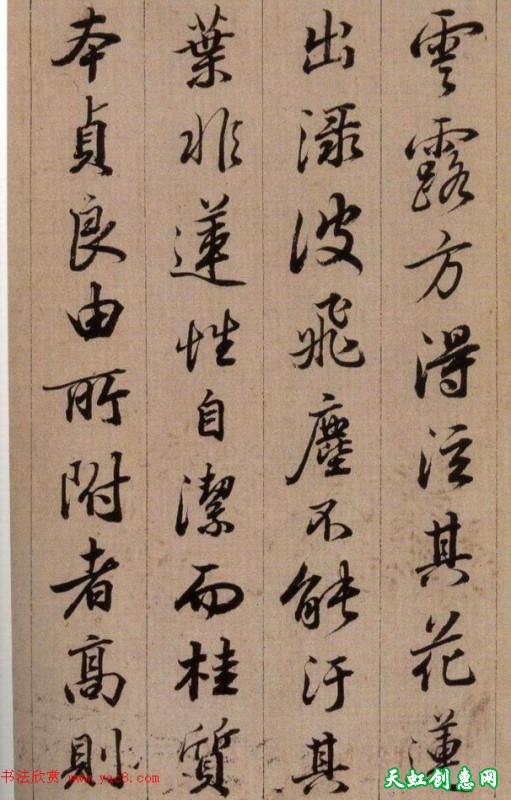 雲露方得泫其花蓮
出淥波飛塵不能汙其
葉非蓮性自潔而桂質
本貞良由所附者高則
书法欣赏 www.yac8.com
天虹创惠网